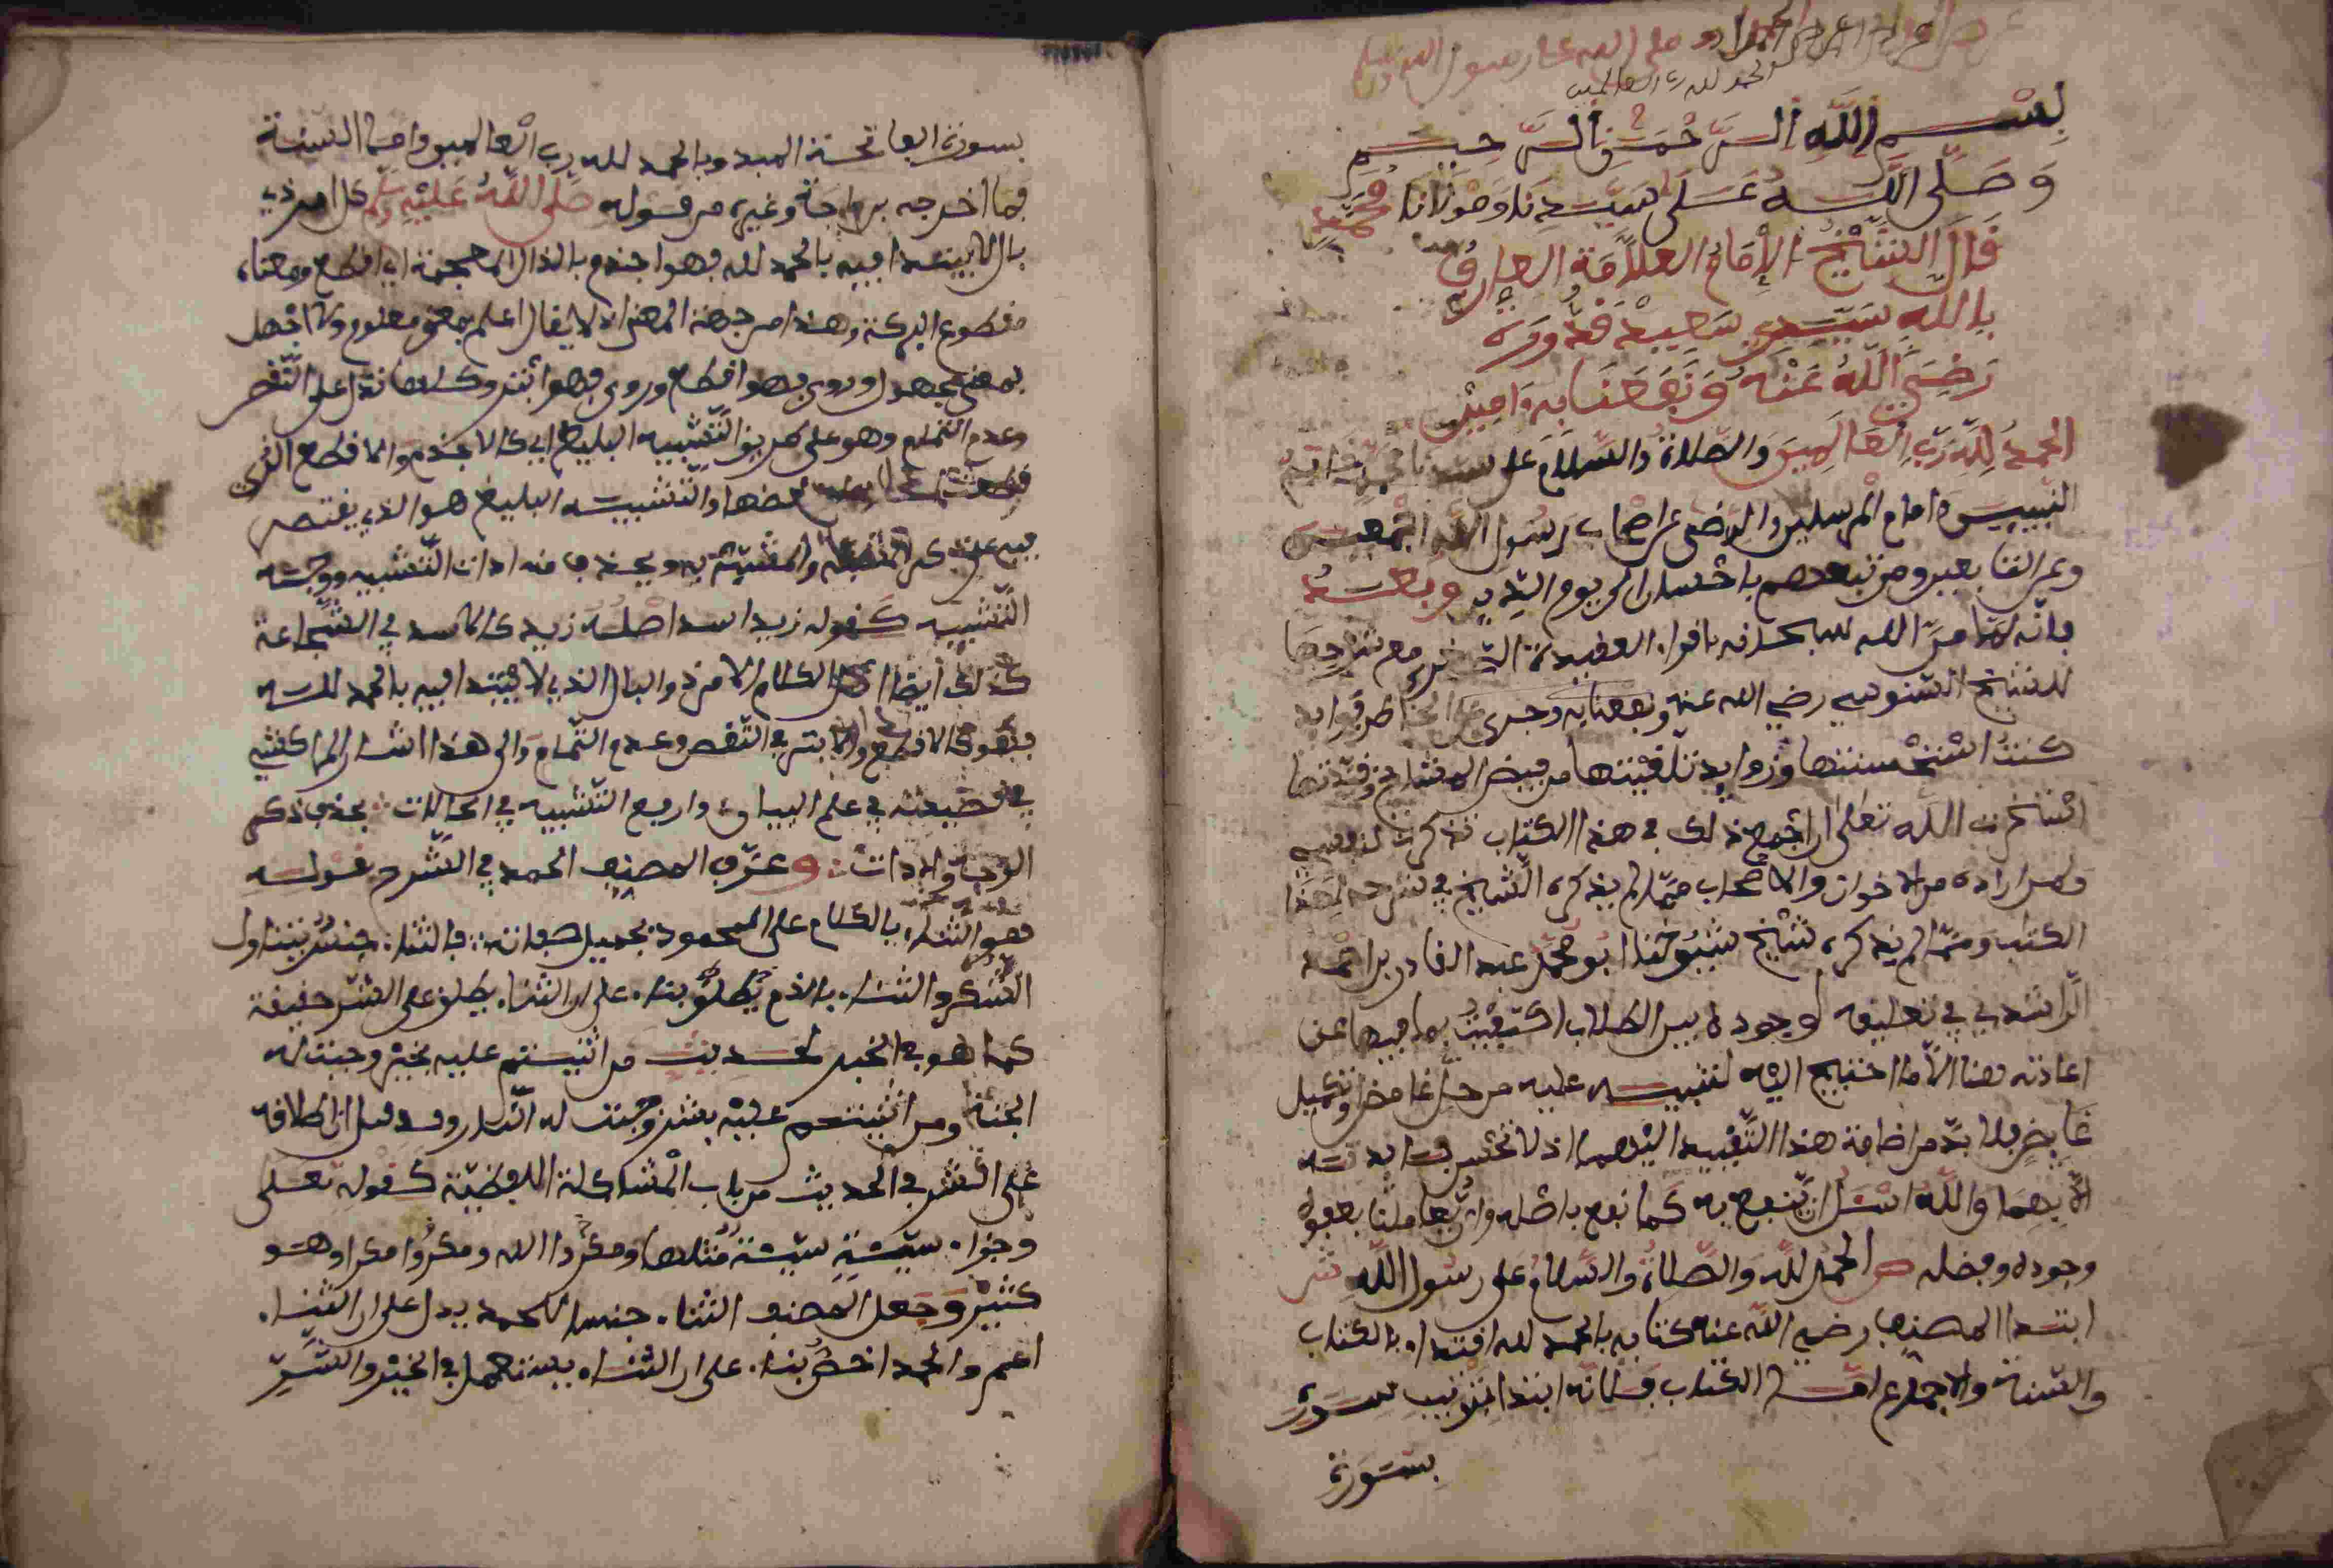 صلى الله على رسول الله
الحمد لله رب العالمين
بِسْمِ اللَّهِ الرَّحْمَنِ الرَّحِيمِ
وَصَلَّى اللَّهُ عَلَى سَيِّدِنَا وَمَوْلَانَا مُحَمَّدٍ
قَالَ الشَّيْخُ الإِمَامُ العَلَّامَةُ العَارِفُ
بِاللَّهِ سَيِّدِي سَعِيدْ قَدُّورَة
رَضِيَ اللَّهُ عَنْهُ وَنَفَعَنَا بِهِ ءَامِين
الحمدُ لِلَّهِ رَبِّ العَالَمِينَ وَالصَّلاةُ وَالسَّلَامُ على سيدنا محمد خاتم
النبيين وامام المرسلين والرضى عن اصحاب رسول الله اجمعين
وعن التابعين ومن تبعهم باحسان الى يوم الدين وبعد
فانّه لمّا منَّ الله سبحانه باقراء العقيدة الصغرى مع شرحها
للشيخ السنوسي رضي الله عنه ونفعنا به وجرى على الخاطر فوايد
كنتُ استحسنتها وزوايد تلقيتها من فيض المشايخ وقيدتها
استخرت الله تعلى ان اجمع ذلك في هذا الكتاب تذكرة لنفسي
ولمن اراده من الاخوان والاصحاب ممّا لم يذكره الشّيخ في شرحه لهذا
الكتاب وممّا لم يذكره شيخ شيوخنا ابو محمد عبد القادر بن احمد
الرّاشدي في تعليقه لوجوده بين الطلاب اكتفيتُ بما فيهما عن
اعادته هنا الّا ما احتيج اليه لتنبيه عليه من حلّ غامض او تكميل
غايض فلا بدّ من اضافة هذا التّقييد اليهما اذ لا تحسن فايدته
الّا بهما واللّه اسئل ان ينفع به كما نفع باصله وان يعاملنا بعفوه
وجوده وفضله ص الحمد للّه والصّلاةُ والسّلامُ على رسول اللّه ش
ابتدا المصنف رضي الله عنه كتابه بالحمد لله اقتداء بالكتاب
والسنة والاجماع امّا الكتاب فلانّه ابتدا بترتيب سوره
بسورة
بسورة الفاتحة المبدو بالحمد لله رب العالمين واما السنة
فما اخرجه بن ماجة وغيره من قوله صَلَّى اللَّهُ عَلَيْهِ وسلم كل امر ذي
بال لا يبتدا فيه بالحمد لله فهو اجذم بالذال المعجمة اي اقطع ومعناه
مقطوع البركة وهذا من جهة المعنى اذ لا يقال اعلم بمعنى معلوم ولا اجهل
بمعنى مجهول وروي فهو اقطع وروي فهو ابتر وكلها تدل على النّقص
وعدم التّمام وهو على طريق التَّشبيه البليغ اي كالاجذم والاقطع الذي
قطعت بعضها والتّشبيه البليغ هو الذي يقتصر
فيه على ذكر المشبّه والمشبّه به ويحذف منه ادات التّشبيه ووجه
التّشبيه كقوله زيد اسد اصله زيد كالاسد في الشّجاعة
كذلك أيضا اصل الكلام الامر ذو البال الذي لا يبتدا فيه بالحمد لله
فهو كالاقطع والابتر في النّقص وعدم التّمام والى هذا اشار المراكشي
في في علم البيان وارفع التّشبيه في الحالات بحذف ذكر
الوجه والادات و عرّف المصنف الحمد في الشّرح بقوله
هو الثّناء بالكلام على المحمود بجميل صفاته فالثناء جنسٌ يتناول
الشكر والثناء بالذم بناء على ان الثناء يطلق على الشّر حقيقة
كما هو في الخير لحديث من اثنيتم عليه بخير وجبت له
الجنة ومن اثنيتم عليه بشر وجبت له النّار وقد قيل ان اطلاقه
على الشّر في الحديث من باب المشاكلة اللفظيّة كقوله تعلى
وجزاء سيّئةٍ سيّئة مّثلها ومكروا ومكر الله ومكرُوا مكرا وهو
كثيْر وجعل المصنف الثناء جنسا للحمد يدل على ان الثناء
اعم والحمد اخصُّ بناء على ان الثناء يستعمل في الخيْر والشّرِّ